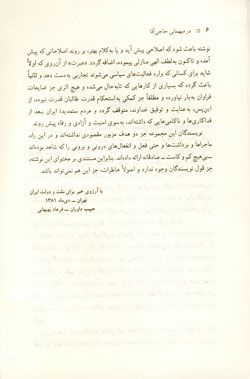 ۶ □ در میهمانی حاجی‌آقا
نوشته باعث شود که اصلاحی پیش آید و یا به‌کلام بهتر، بر روند اصلاحاتی که پیش
آمده و تاکنون به‌لطف الهی منازلی پیموده، اضافه گردد. «عبرت» از آن‌روی که اولاً
شاید برای کسانی که وارد فعالیت‌های سیاسی می‌شوند تجاربی به‌دست دهد و ثانیاً
باعث گردد که بسیاری از کارهایی که تابه‌حال می‌شده و هیچ اثری جز ضایعات
فراوان به‌بار نیاورده و مطلقاً جز کمکی به‌استحکام قدرت طالبان قدرت نبوده، از
این‌پس، به‌عنایت و توفیق خداوند، متوقف گردد و مردم ستمدیدهٔ ایران بعد از
فداکاری‌ها و ناکامی‌هایی که داشته‌اند، به‌سوی امنیت و آزادی و رفاه پیش روند.
نویسندگان این مجموعه جز دو هدف مزبور مقصودی نداشته‌اند و در این راه،
ماجراها و برداشت‌ها و حتی فعل و انفعال‌های درونی و برونی را که شاهد بوده‌اند
ـ بی‌هیچ کم و کاست ـ صادقانه ارائه داده‌اند. بنابراین مستندی بر محتوای این نوشته،
جز قول نویسندگان وجود ندارد و اصولاً خاطرات، جز این هم نمی‌تواند باشد.
با آرزوی خیر برای ملت و دولت ایران
تهران ـ دی‌ماه ۱۳۸۱
حبیب داوران ـ فرهاد بهبهانی